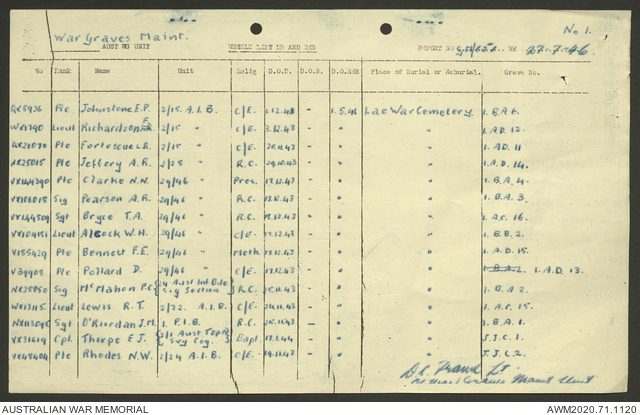 War Graves Maint. No 1.
AUST WG UNIT WEEKLY LIST IS AND REB REPORT NO WE 27.7.46
No Rank Name Unit Relig D.O.D. D.O.B. D.ORSB Place of Burial or Reburial. Grave No.
QX5936 Pte Johnstone E.P. 2/15 A.I.B. C/E. 1.12.43 - 1.5.46 Lae War Cemetery 1. B.A. 6.
Lieut Richardson 2/15 " C/E. 3.12.43 - " " 1. A.D. 12.
QX21070 Pte Fortescue L.R. 2/15 " C/E. 20.11.43 - " " 1. A.D. 11
NX25015 Pte Jeffery A.R. 2/28 " R.C. 29.10.43 - " " 1. A.D. 14.
VX144390 Pte Clarke N.N. 29/46 " Pres. 17.12.43 - " " 1. B.A. 4.
Sig Pearson A.R. 29/46 " R.C. 17.12.43 - " " 1. B.A. 3.
VX144509 Sgt Bryce T.A. 29/46 " R.C. 15.12.43 - " " 1. A.C. 16.
VX104181 Lieut Alcock W.H. 29/46 " C/E. 17.12.43 - " " 1. B.B. 2.
V155429 Pte Bennett F.E. 29/46 " Meth. 17.12.43 - " " 1. A.D. 15.
V39908 Pte Pollard D. 29/46 " C/E. 17.12.43 - " " 1. B.A. 2. 1. A.D. 13.
NX35950 Sig McMahon P.C. 4 Aust Inf Bde Sig Section R.C. 25.11.43 - " " 1. B.A. 2
WX13115 Lieut Lewis R.T. 2/32. A.I.B. C/E. 20.11.43 - " " 1. A.C. 15.
Sgt O'Riordan J.M. 1. P.I.B. R.C. 25.11.43 - " " 1. B.A. 1.
VX31619 Cpl. Thorpe E.J. 2/1 Aust Topo Svy Coy. Bapt. 17.1.44 - " " J.J.C. 1.
Pte Rhodes N.W. 2/24 A.I.B. C/E. 19.11.43 - " " J.J.C. 2.
Lt.
War Graves Maint Unit
AUSTRALIAN WAR MEMORIAL AWM2020.71.1120